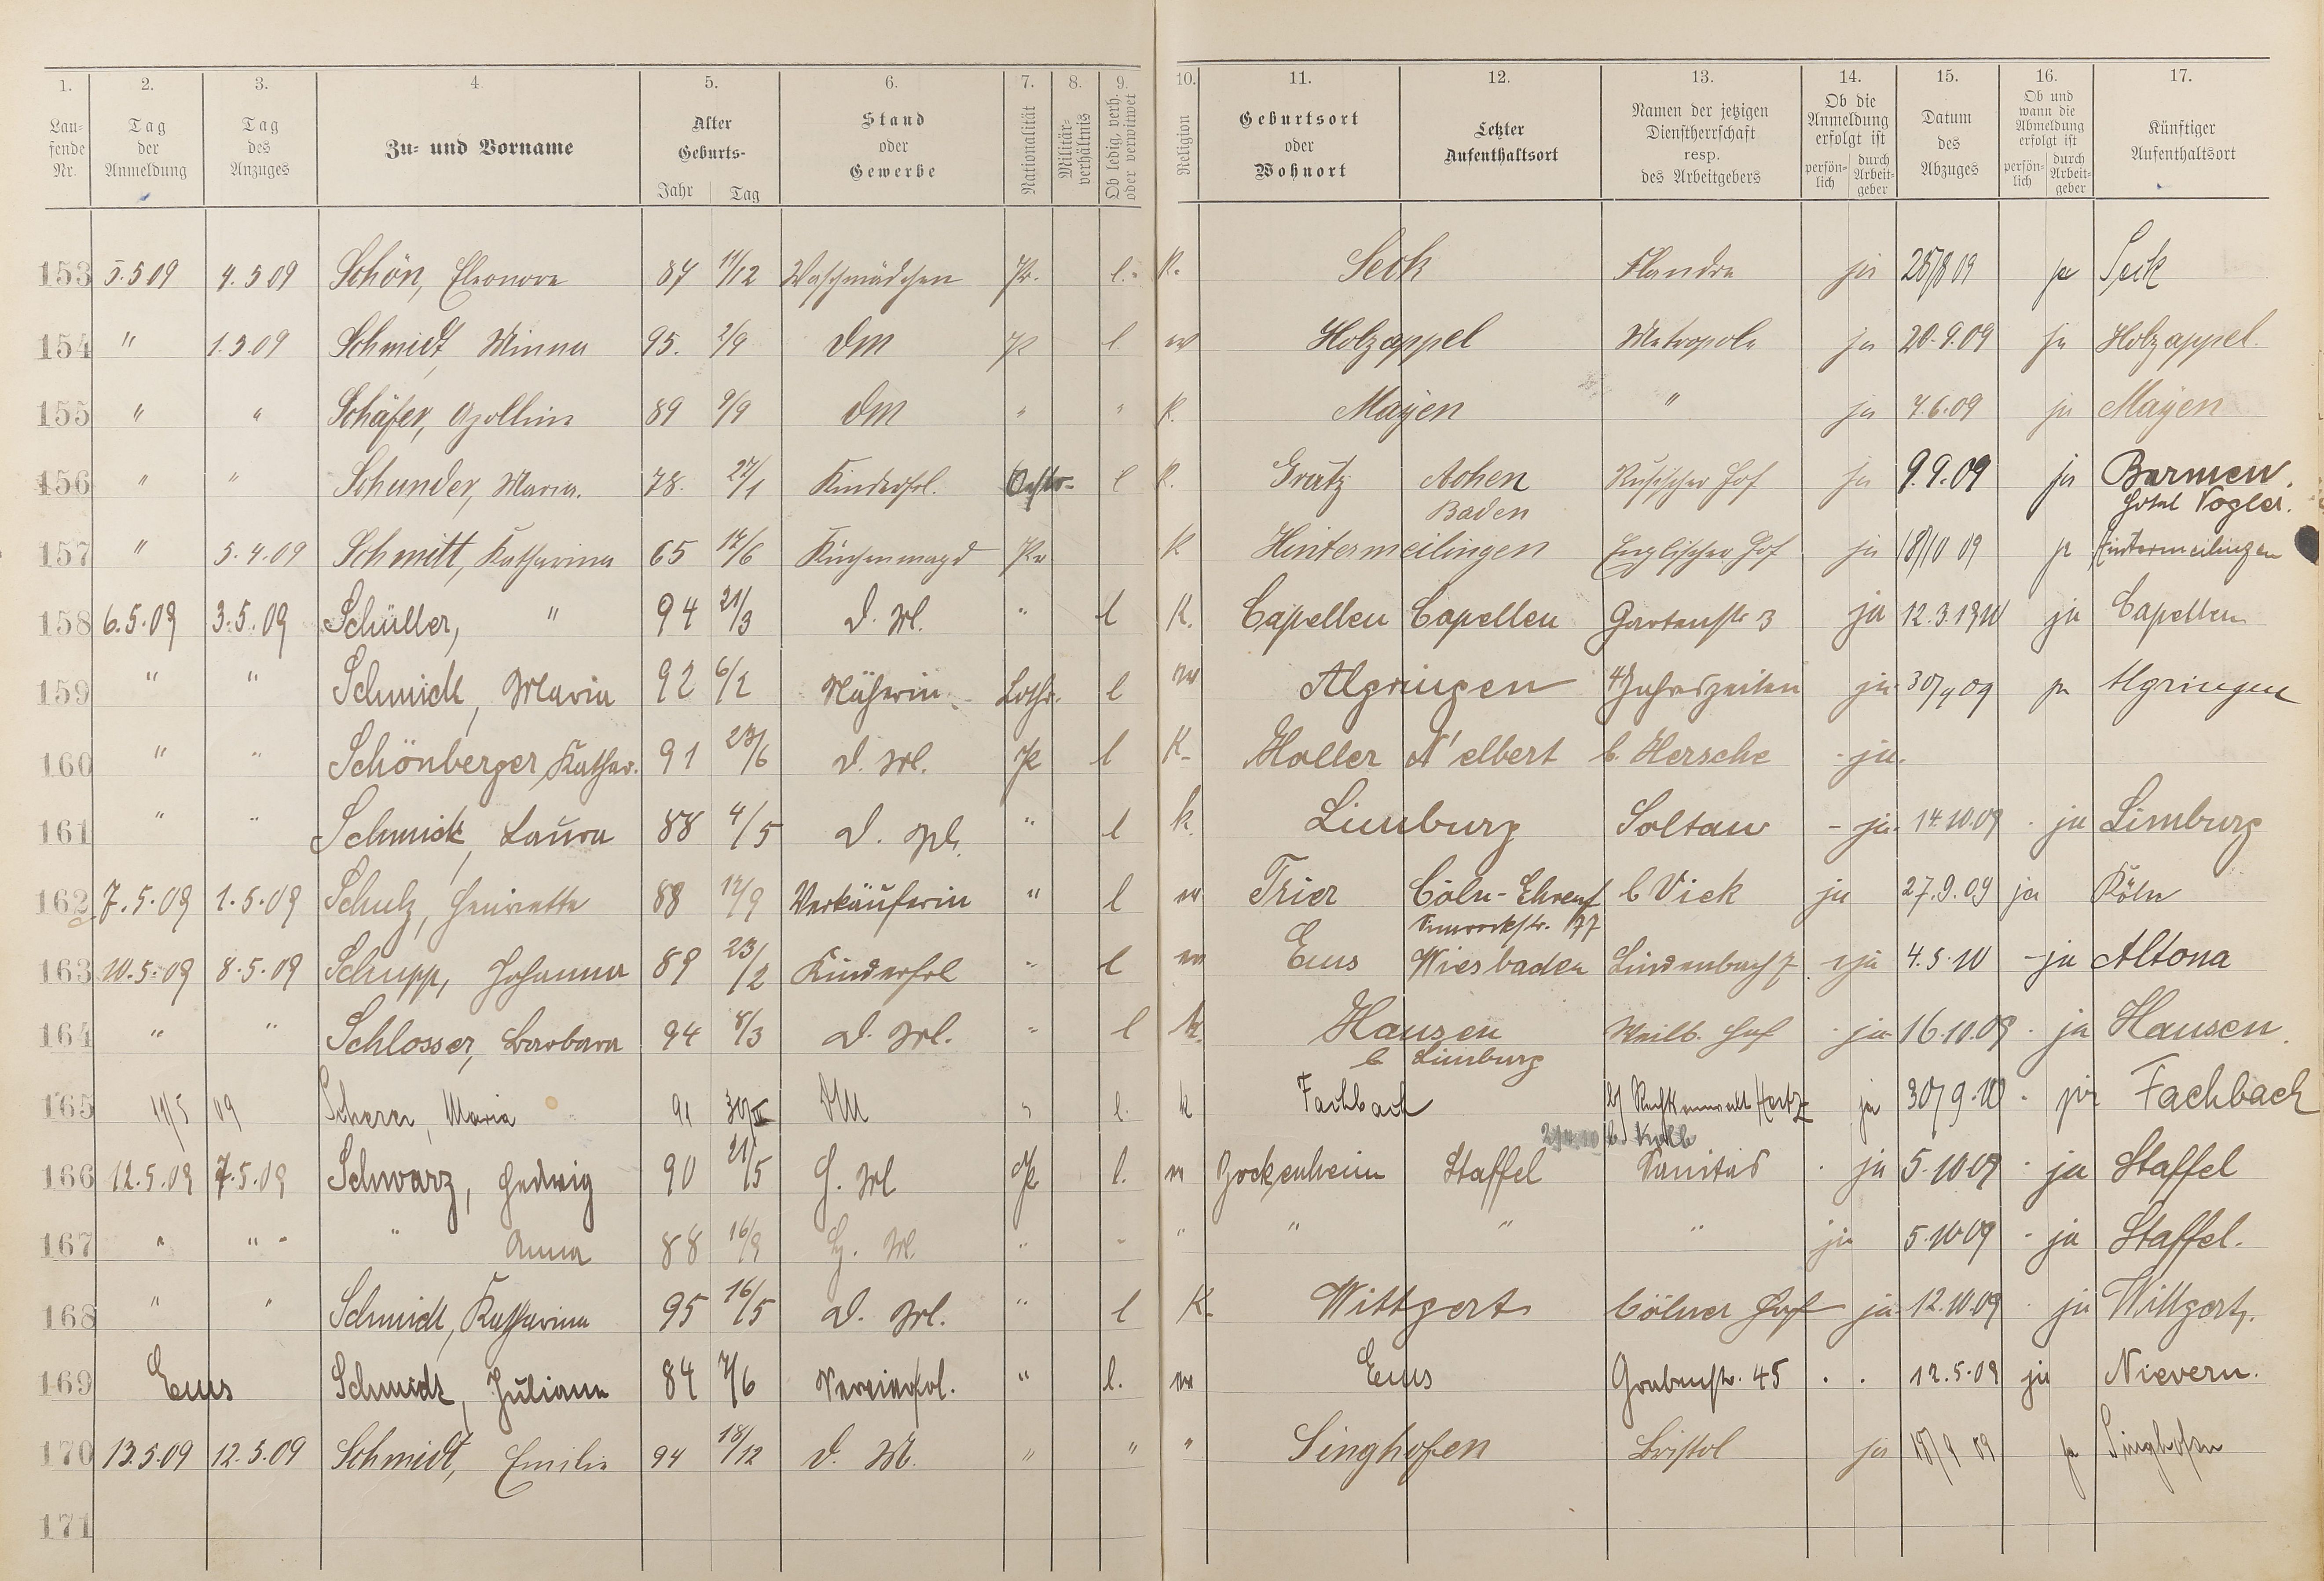 1. 2. 3. 4. 5. 6. 7. 8. 9. 10. 11. 12. 13. 14. 15. 16. 17.
Laufende Nr. Tag der Anmeldung Tag des Anzuges Zu- und Vorname Alter Geburts- Jahr Tag Stand oder Gewerbe Nationalität Militärverhältnis Ob ledig, verh. oder verwitwet Religion Geburtsort oder Wohnort Letzter Aufenthaltsort Namen der jetzigen Dienstherrschaft resp. des Arbeitgebers Ob die Anmeldung erfolgt ist persönlich durch Arbeitgeber Datum des Abzuges Ob und wann die Abmeldung erfolgt ist persönlich durch Arbeitgeber Künftiger Aufenthaltsort
153 5.5 09 4.5 09 Schön, Eleonore 87 11/12 Waschmädchen Pr. l. K. Seck Flandre ja 28/8 09 ja Seck
154 " 1.5.09 Schmidt, Minna 95. 2/9 DM Pr l ev Holzappel Metropole ja 20.9.09 ja Holzappel.
155 " " Schäfer, Apollina 89 9/9 DM " " K. Mayen " ja 4.6.09 ja Mayen
156 " " Schunder, Maria. 78. 27/1 Kinderfrl. Oestr. l K. Gratz Achen Russischer Hof ja 9.9.09 ja Barmen.
Baden Hotel Vogler.
157 " 5.4.09 Schmitt, Katharina 65 17/6 Küchenmagd Pr K Hintermeilingen Englischer Hof ja 18/10 09 ja Hintermeilingen
158 6.5.09 3.5.09 Schüller, " 94 21/3 D. M. " l K. Capellen Capellen Gartenstr 3 ja 12.3.1910 ja Capellen
159 " " Schmidt, Maria 92 6/2 Näherin Lothr. l ev Algringen 4 Jahreszeiten ja 30/9 09 ja Algringen
160 " " Schönberger, Kathar. 91 23/6 D. M. Pr l K. Holler N'elbert b. Hersche ja.
161 " " Schmidt, Laura 88 4/5 D. M. " l k. Limburg Soltau - ja. 14.10.09 . ja Limburg
162 7.5.09 1.5.09 Schulz, Henriette 88 17/9 Verkäuferin " l ev Trier Cöln-Ehrenf b Vick ja 27.9.09 ja Köln
77
163 10.5.09 8.5.09 Schupp, Johanna 89 23/2 Kinderfrl " l ev Ems Wiesbaden Lindenbach 7 ja 4.5.10 - ja Altona
164 " " Schlosser, Barbara 94 8/3 D. M. " l k. Hausen Weilb. Hof . ja 16.10.09 . ja Hausen.
b Limburg
165 11/5 09 Scherer, Maria 91 30/III DM " l. k Fachbach b/ Rechtsanwalt Hertz ja 30/9.10 . ja Fachbach
b. Kalb
166 12.5.09 7.5.09 Schwarz, Hedwig 90 21/5 H. M Pr l. ev Bockenheim Staffel Sanitas . ja 5.10 09 . ja Staffel
167 " " " " Anna 88 16/9 H. M. " " " " " " ja 5.10 09 - ja Staffel.
168 " " Schmidt, Katharina 95 16/5 D. M. " l K. Wittgert Cölner Hof ja 12.10.09 . ja Wittgert.
169 Ems Schmidt, Juliane 84 7/6 " l. ev Ems Grabenstr. 45 . . 12.5.09 ja Nievern.
170 13.5.09 12.5.09 Schmidt, Emilie 94 18/12 D. M. " " " Singhofen Bristol ja 18/9 09 ja Singhofen
171